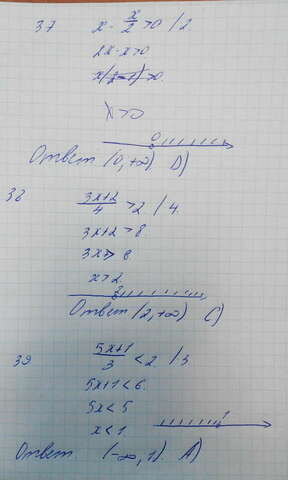 37 x - x/2 > 0 / 2
2x - x > 0
x(2-1) > 0
x > 0
0
Ответ (0, +∞) D)
38 3x+2/4 > 2 / 4
3x+2 > 8
3x > 6
x > 2
2
Ответ (2, +∞) C)
39 5x+1/3 < 2 / 3
5x+1 < 6
5x < 5
x < 1
1
Ответ (-∞, 1) A)